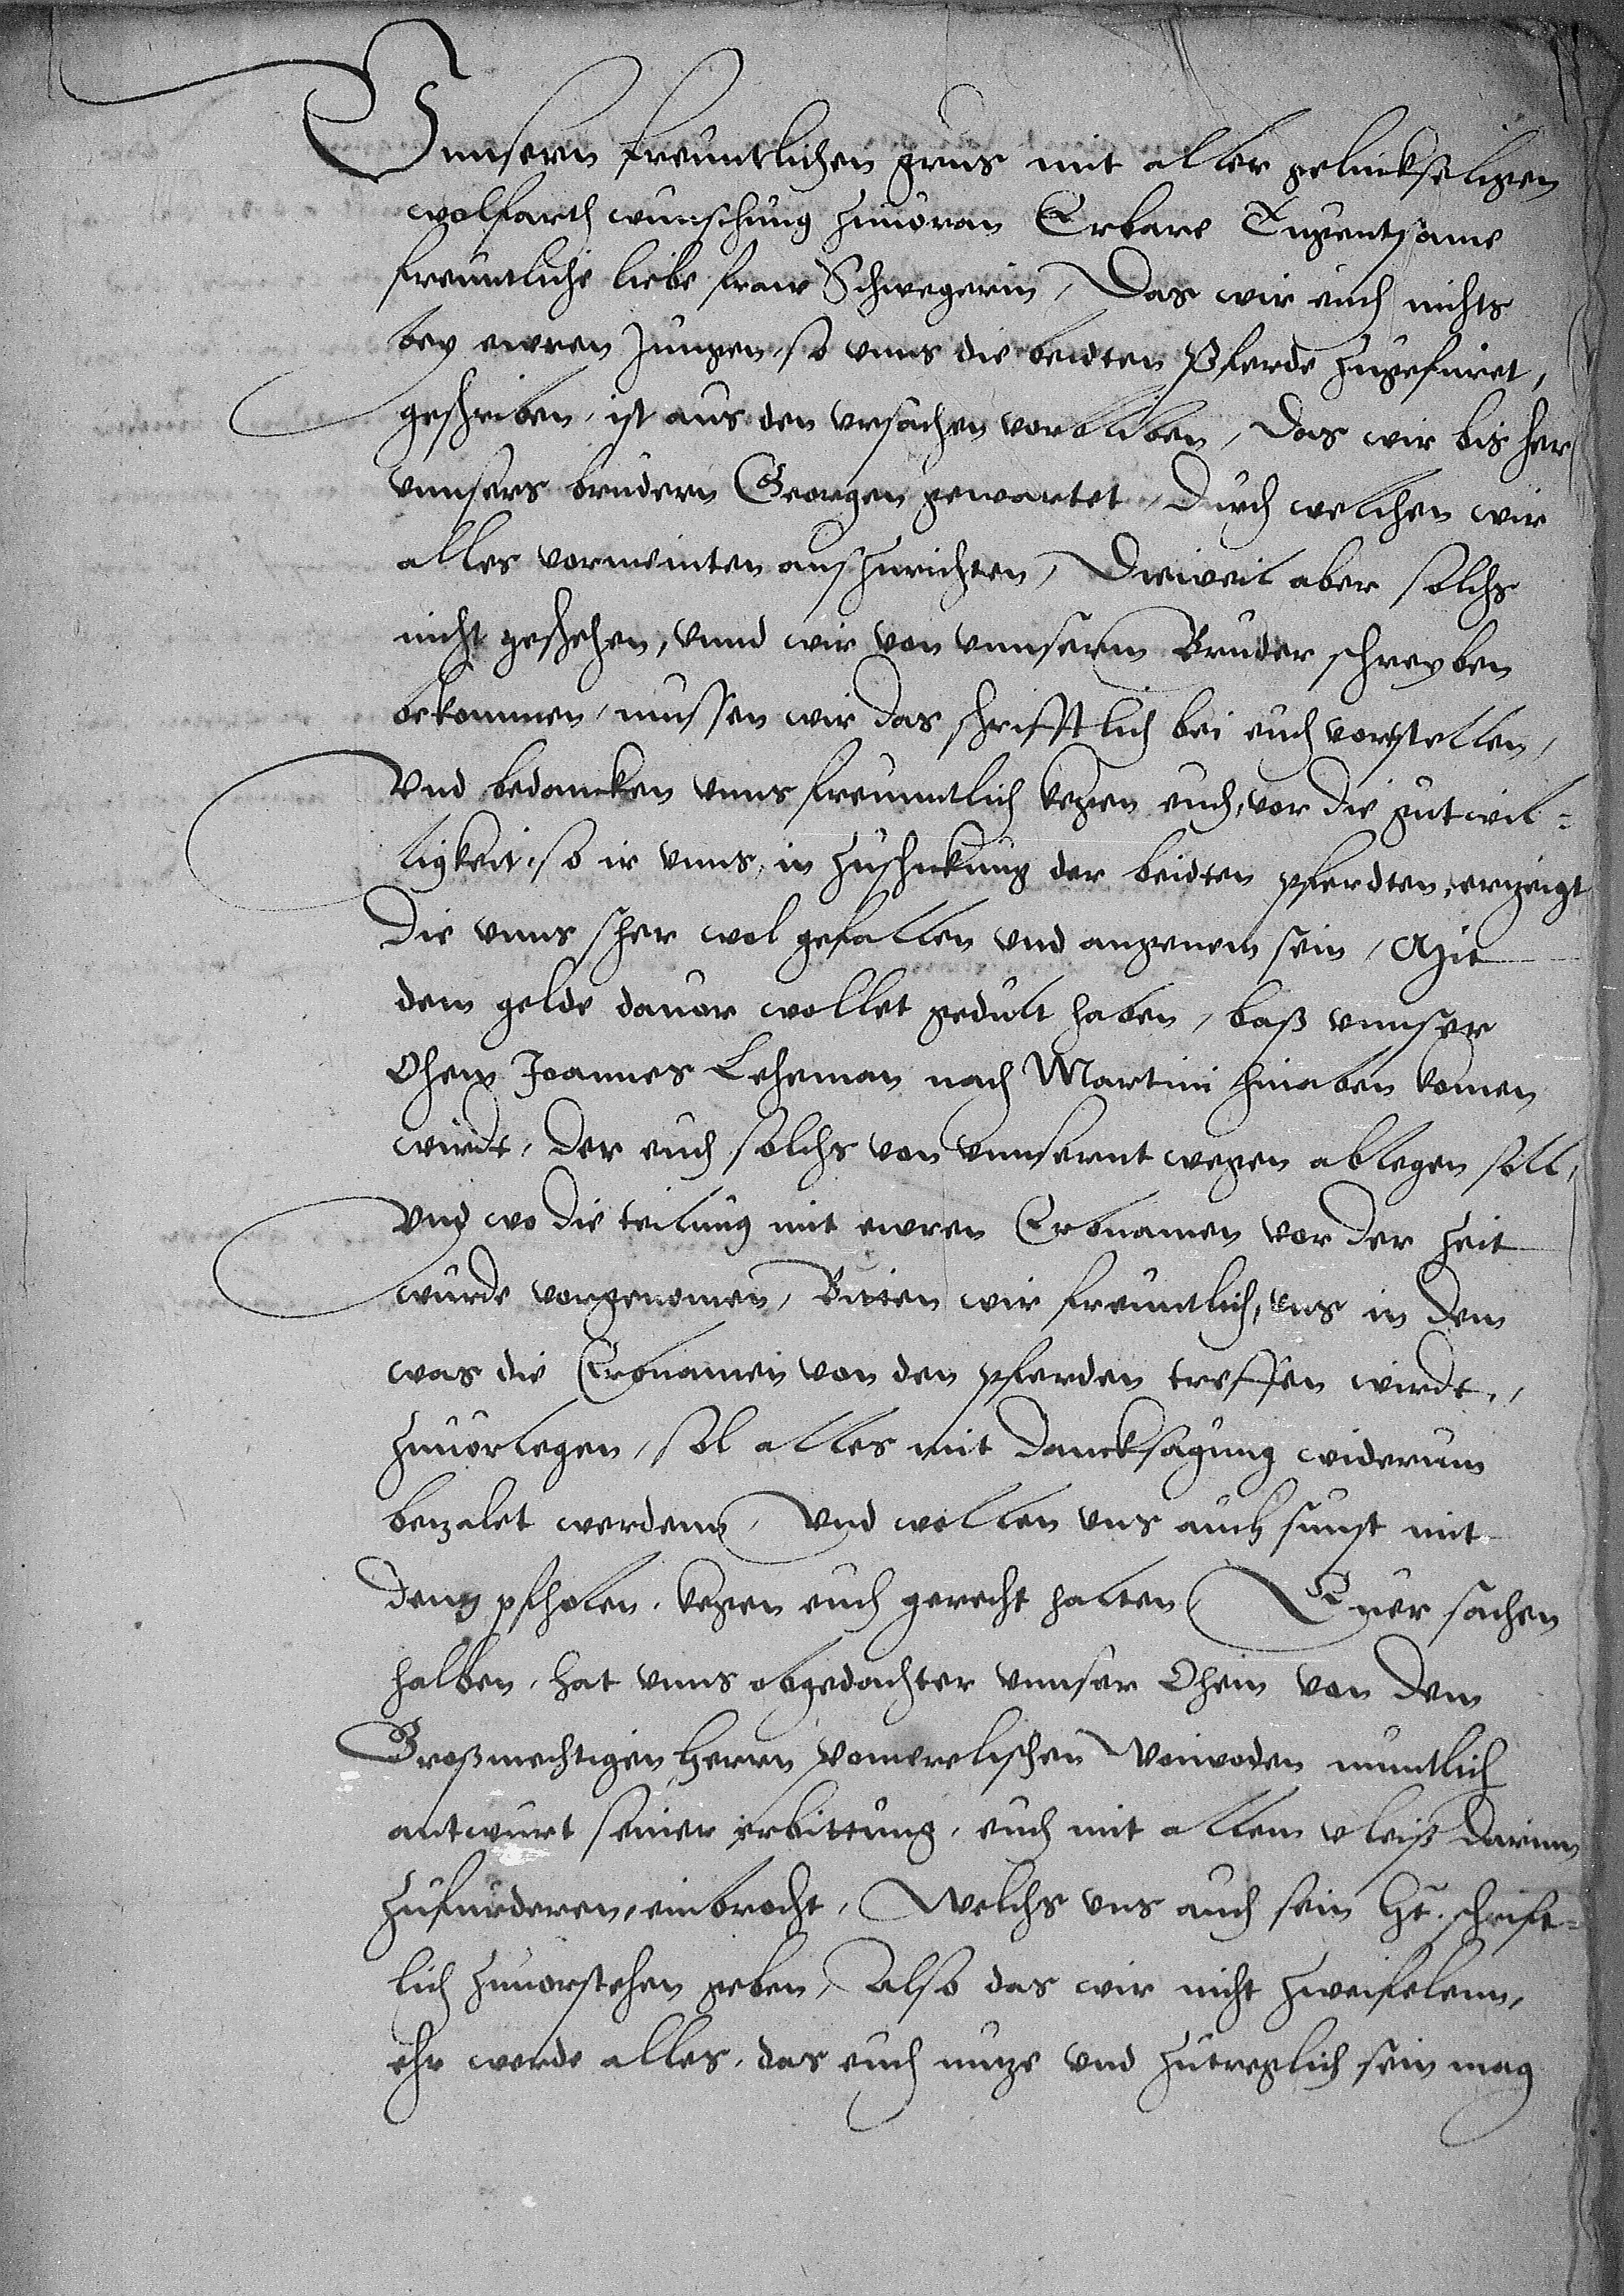 Vnnsern freuntlichen grus mit aller gelückseligen
wolfarth wunschung zuuoran Erbare Tugentsame
freuntliche liebe fraw Schwegerin, Das wir euch nichts
bey ewren Jungen, so vnns die beidten Pferde zugefüret,
geschriben, ist aus den vrsachen vorbliben, das wir bis her
vnnsers brudern Georgen gewartet, durch welchen wir
alles vormeinten auszurichten, Dieweil aber solchs
nicht geschehen, vnnd wir von vnnserm Bruder schreyben
bekommen, mussen wir das schrifftlich bei euch vorstellen,
Vnd bedancken vnns freunntlich kegen euch, vor die gutwil=
ligkeit, so ir vnns, in zuschickung der beidten pferdten, erzeigt
Die vnns seher wol gefallen vnd angenem sein, Mit
dem gelde dauor wollet gedult haben, bas vnnser
Ohem Joannes Leheman nach Martini hinaben komen
wirdt, der euch solchs von vnnsernt wegen ablegen soll,
Vnd wo die teilung mit ewren Erbnamen vor der zeit
würde vorgenomen, Bitten wir freuntlich, vns in dem
was die Erbnamen von den pferden treffen wirdt,
zuuorlegen, sol alles mit dancksagung widerum
bezalet werdenn, Vnd wollen vns auch sunst mit
denn pfholen, kegen euch gerecht halten Euer sachen
halben, hat vnns obgedachter vnnser Ohem von dem
Großmechtigen Herrn pomerelischen Woiwoden muntlich
antwurt seiner erbittung, euch mit allem vleis darinn
zufurderen, einbrocht, Welchs vns auch sein Ht. schrift=
lich zuuorstehen geben, Also das wir nicht zweifelenn,
ehr werde alles, das euch nutze vnd zutreglich sein mag